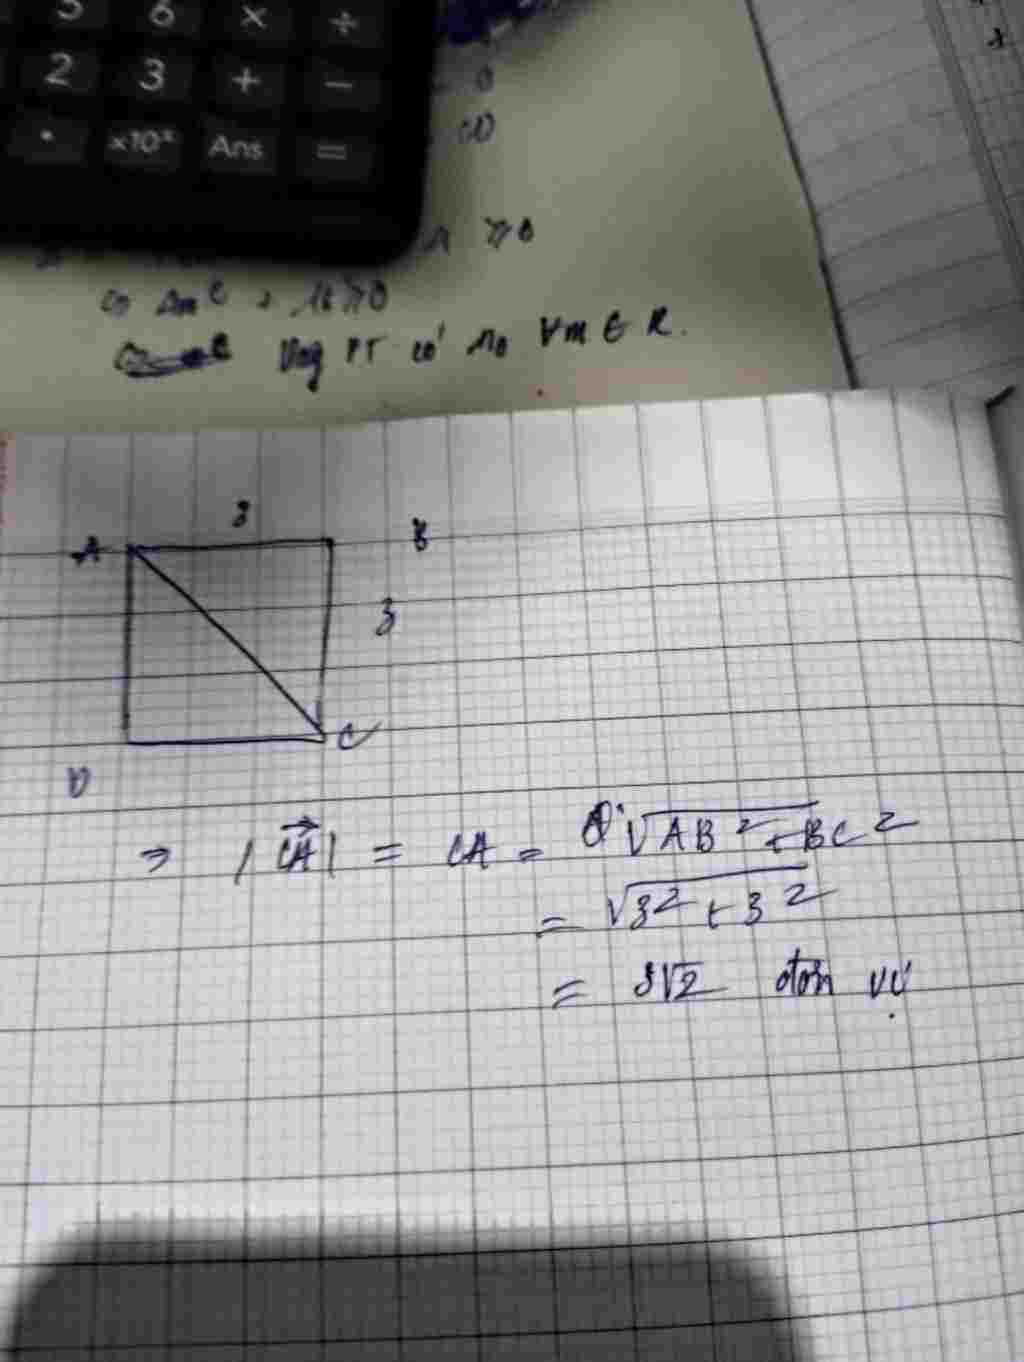 5 6 × ÷
2 3 + −
· ×10ˣ Ans =
0
≥ 0
≥ 0
Vậy PT có n₀ ∀m ∈ R.
3
A B
3
C
D
⇒ |CA⃗| = CA = √AB² + BC²
= √3² + 3²
= 3√2 đơn vị